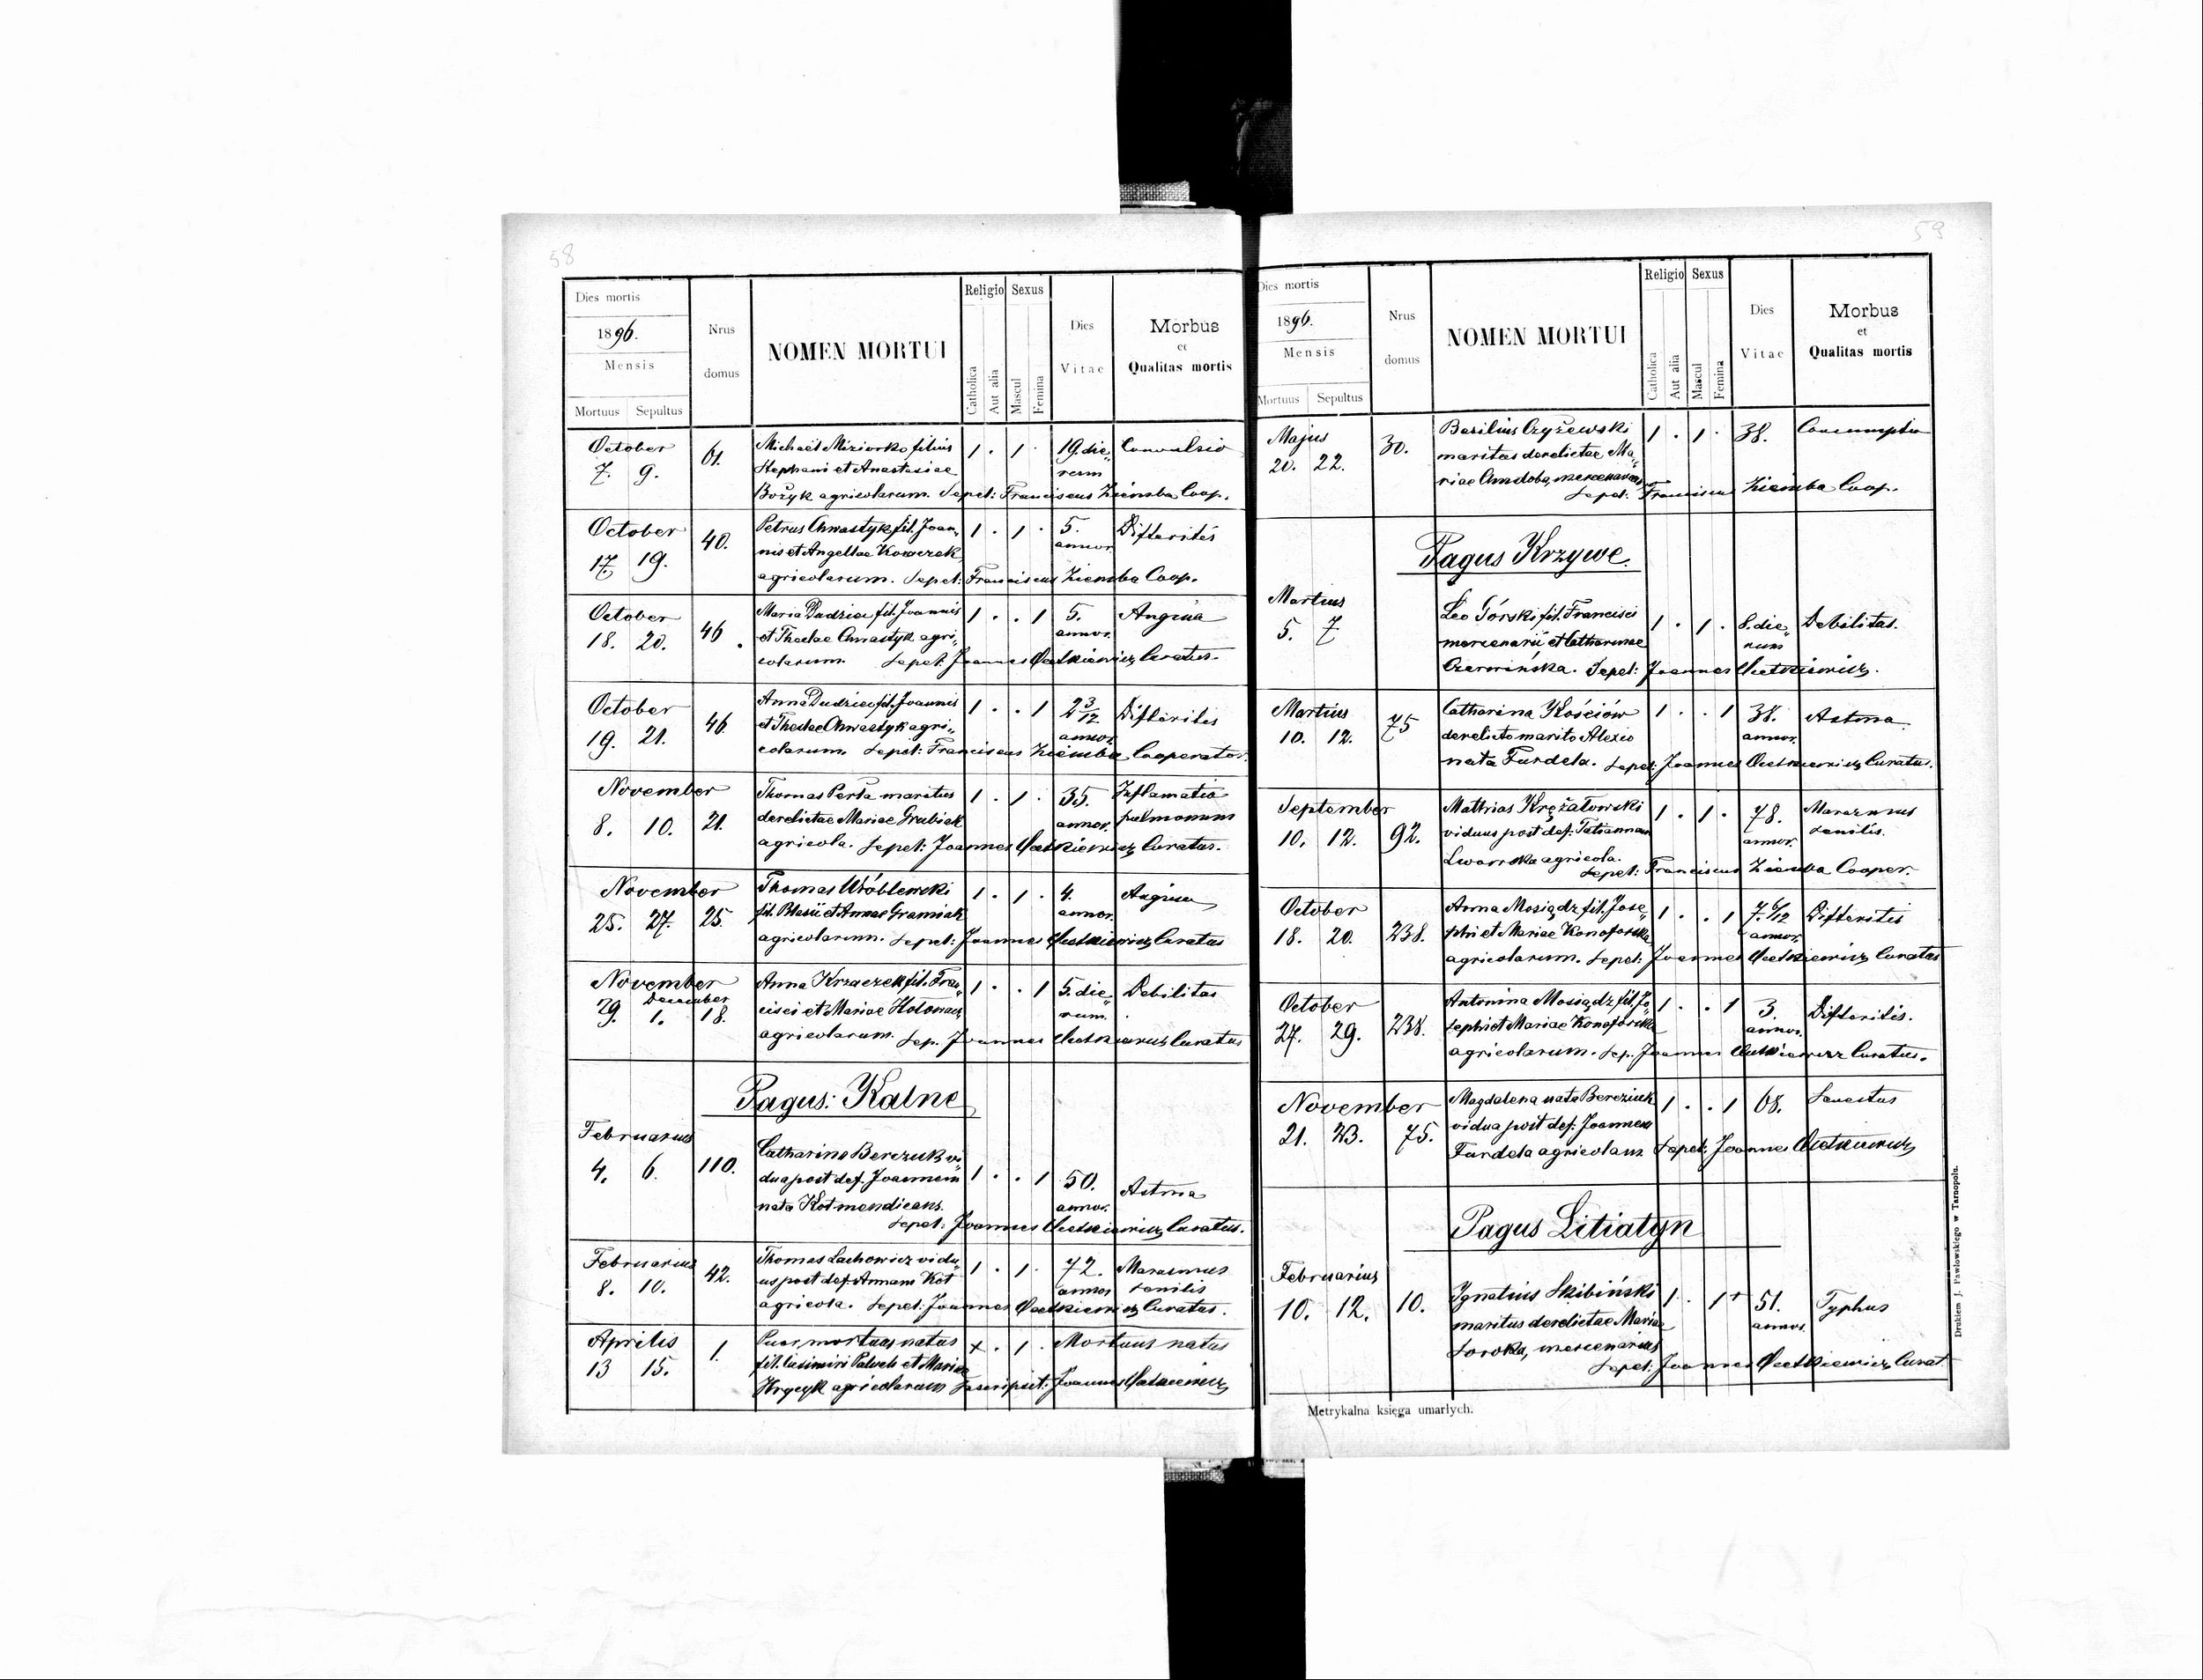 58
Dies mortis
1896.
Mensis
Mortuus Sepultus
Nrus
domus
NOMEN MORTUI
Religio Sexus
Catholica Aut alia Mascul Femina
Dies
Vitae
Morbus
et
Qualitas mortis
October 61. Michaël Miziorko filius 1 . 1 . 19. die„ Convulsio
7. 9. Stephani et Anastasiae rum
Bożyk agricolarum. Sepel: Franciscus Ziemba Coop.
October 40. Petrus Chwastyk fil. Joan„ 1 . 1 . 5. Difteritis
17. 19. nis et Angellae Kowerzek annor.
agricolarum. Sepel: Franciscus Ziemba Coop.
October 46. Maria Dudzicz fil. Joannis 1 . . 1 5. Angina
18. 20. et Theclae Chwastyk agri„ annor.
colarum. Sepel: Joannes Curatus.
October 46. Anna Dudzicz fil. Joannis 1 . . 1 2 3/12 Difteritis
19. 21. et Theclae Chwastyk agri„ annor.
colarum. Sepel: Franciscus Ziemba Cooperator.
November Thomas Perła maritus 1 . 1 . 35. Inflamatio
8. 10. 21. derelictae Mariae Grubiak annor. pulmonum
agricola. Sepel: Joannes Curatus.
November Thomas Wróblewski 1 . 1 . 4. Angina
25. 27. 25. fil. Blasii et Annae Gramiak annor.
agricolarum. Sepel: Joannes Curatus
November Anna Krzaczek fil. Fran„ 1 . . 1 5. die„ Debilitas
29. December 1. 18. cisci et Mariae rum.
agricolarum. Sep. Joannes Curatus
Pagus: Kalne
Februarius
4. 6. 110. Catharina Berezuk vi„ 1 . . 1 50. Astma
dua post def. Joannem annor.
nata Kot mendicans.
Sepel: Joannes Curatus.
Februarius 42. Thomas Lachowicz vidu„ 1 . 1 . 72. Marasmus
8. 10. us post def. Annam Kot annor senilis
agricola. Sepel: Joannes Curatus.
Aprilis 1. Puer mortuus natus + . 1 . Mortuus natus
13 15. fil. Casimiri et Mariae
Hrycyk agricolarum Inscripsit: Joannes
59
Dies mortis
1896.
Mensis
Mortuus Sepultus
Nrus
domus
NOMEN MORTUI
Religio Sexus
Catholica Aut alia Mascul Femina
Dies
Vitae
Morbus
et
Qualitas mortis
Majus 30. Basilius Czyżewski 1 . 1 . 38. Consumptio
20. 22. maritus derelictae Ma„
riae Chudoba, mercenarius
Sepel: Franciscus Ziemba Coop.
Pagus Krzywe.
Martius
5. 7 Leo Górski fil. Francisci 1 . 1 . 8. die„ Debilitas.
mercenarii et Catharinae rum
Czerwińska. Sepel: Joannes
Martius 75 Catharina Kościów 1 . . 1 38. Astma
10. 12. derelicto marito Alexio annor.
nata Fardela. Sepel: Joannes Curatus.
September Mathias Krężałowski 1 . 1 . 78. Marasmus
10. 12. 92. viduus post def. Tatiannam annor. senilis.
agricola.
Sepel: Franciscus Ziemba Cooper.
October Anna Mosiądz fil. Jose„ 1 . . 1 7. 6/12 Difteritis
18. 20. 238. phi et Mariae Konoforska annor.
agricolarum. Sepel: Joannes Curatus
October Antonina Mosiądz fil. Jo„ 1 . . 1 3. Difteritis.
27. 29. 238. sephi et Mariae Konoforska annor.
agricolarum. Sep. Joannes Curatus.
November Magdalena nata Bereziuk 1 . . 1 68. Senectus
21. 23. 75. vidua post def. Joannem
Fardela agricolam Sepel: Joannes
Pagus Litiatyn
Februarius
10. 12. 10. Ignatius Skibiński 1 . 1 + 51. Typhus
maritus derelictae Mariae annor.
Soroka, mercenarius
Sepel: Joannes Curat.
Metrykalna księga umarłych.
Drukiem J. Pawłowskiego w Tarnopolu.